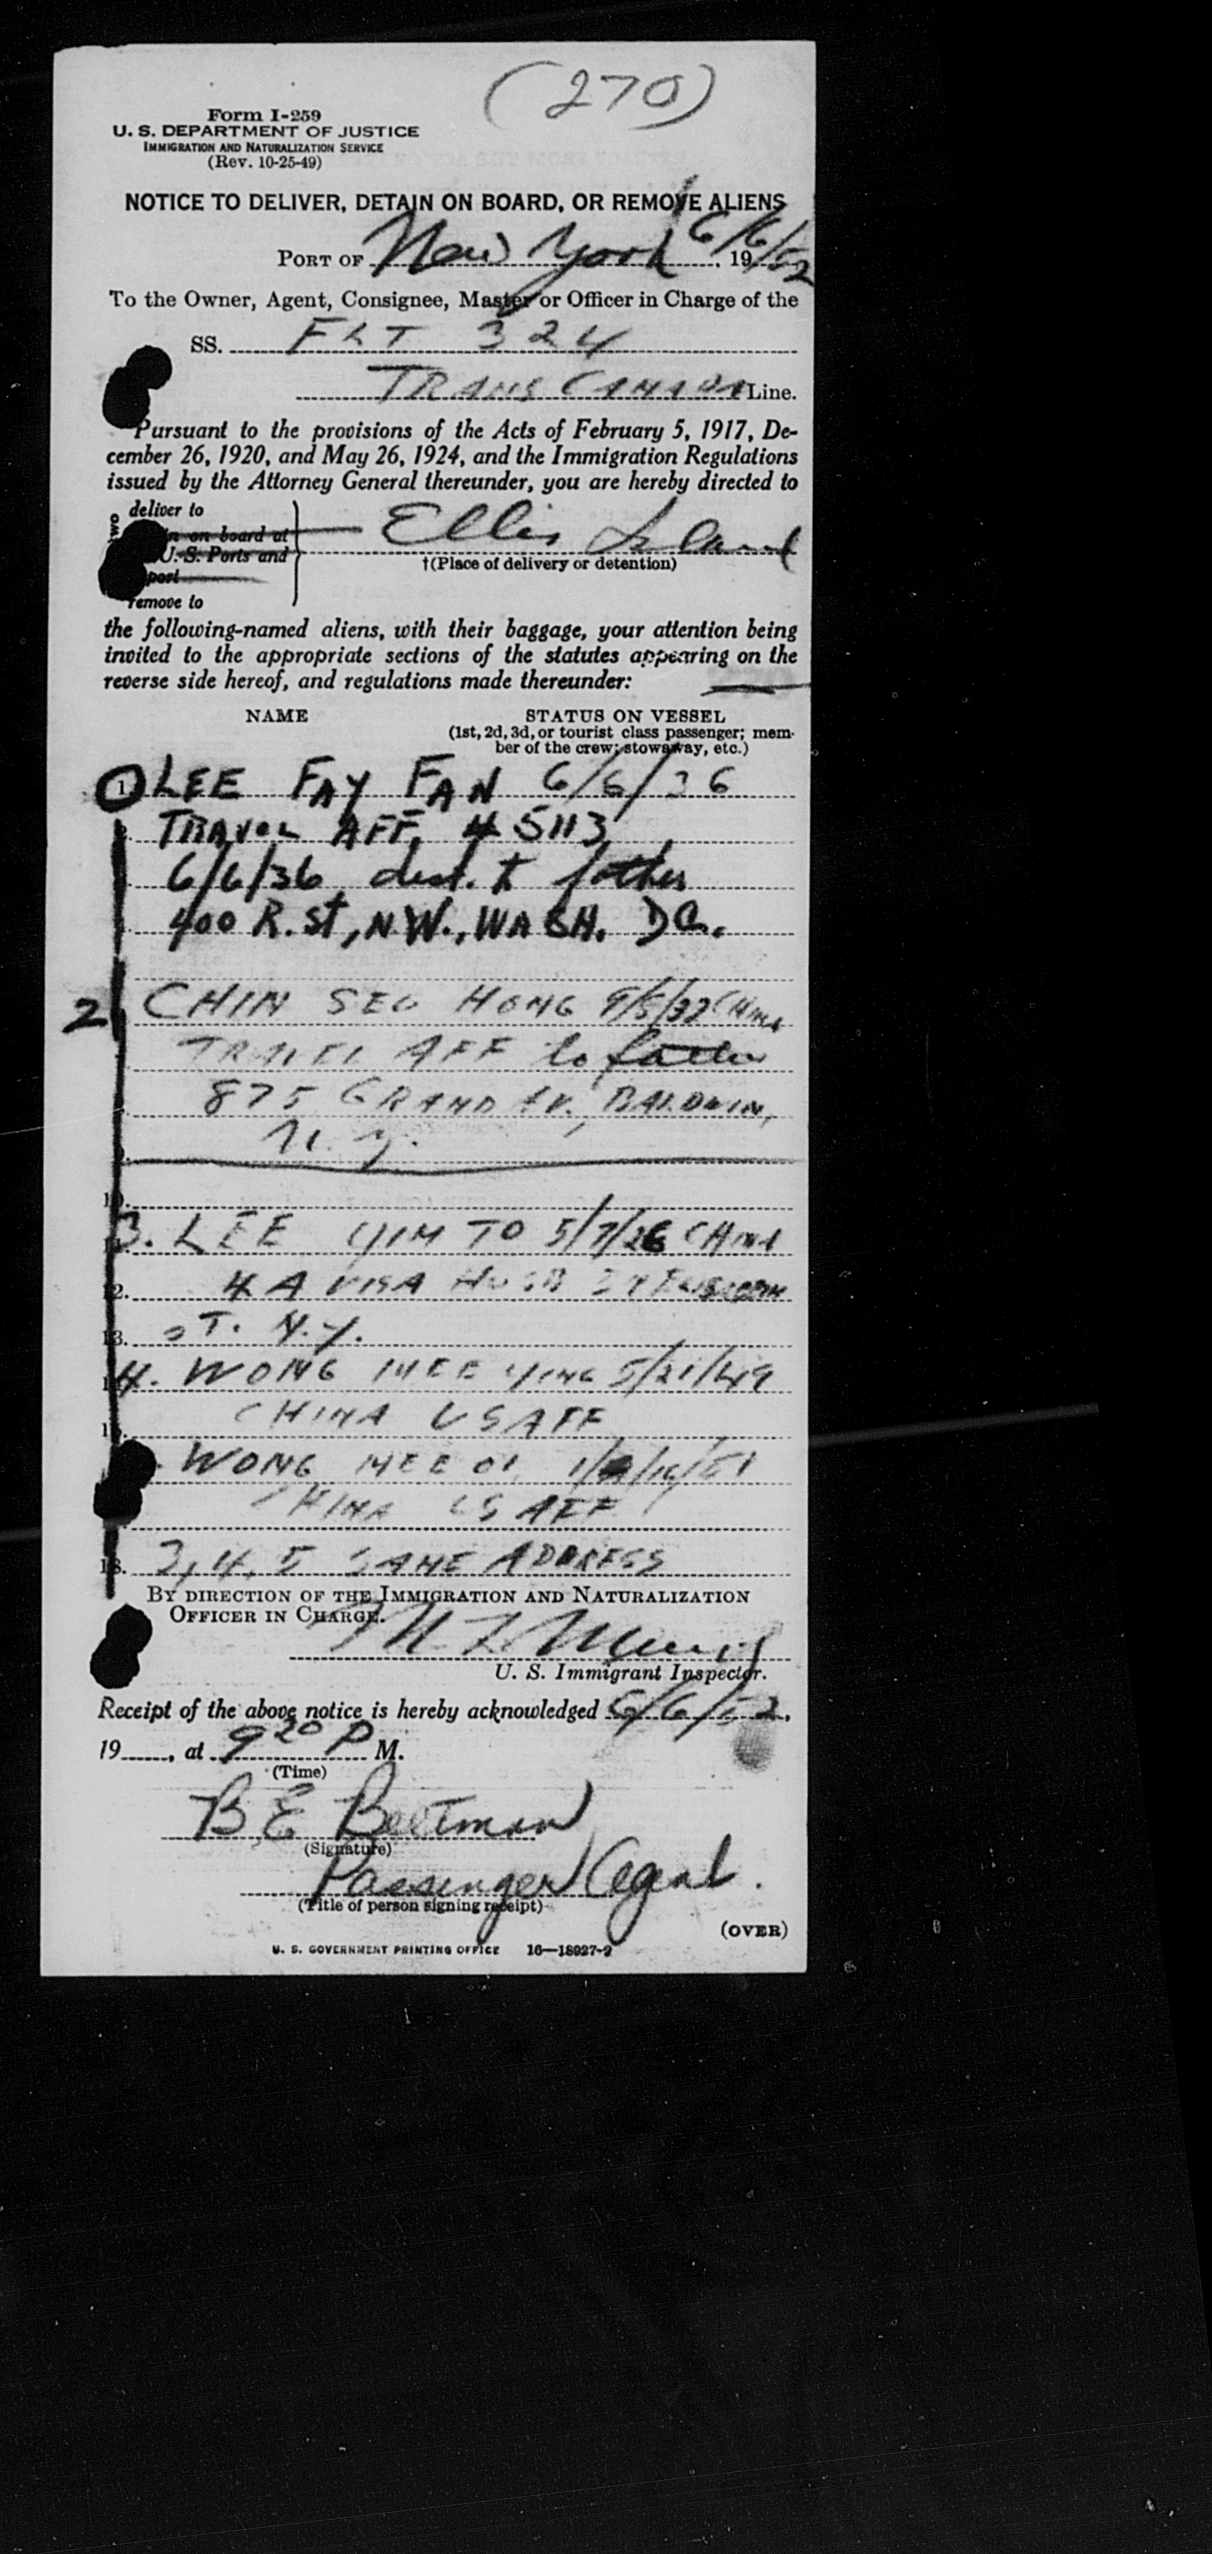 (270)
Form I-259
U. S. DEPARTMENT OF JUSTICE
IMMIGRATION AND NATURALIZATION SERVICE
(Rev. 10-25-49)
NOTICE TO DELIVER, DETAIN ON BOARD, OR REMOVE ALIENS
PORT OF New York 6/6/52, 19
To the Owner, Agent, Consignee, Master or Officer in Charge of the
SS. FLT 324
TRANS CANADA Line.
Pursuant to the provisions of the Acts of February 5, 1917, De-
cember 26, 1920, and May 26, 1924, and the Immigration Regulations
issued by the Attorney General thereunder, you are hereby directed to
deliver to
on board at Ellis Island
U. S. Ports and
†(Place of delivery or detention)
port
remove to
the following-named aliens, with their baggage, your attention being
invited to the appropriate sections of the statutes appearing on the
reverse side hereof, and regulations made thereunder:
NAME STATUS ON VESSEL
(1st, 2d, 3d, or tourist class passenger; mem-
ber of the crew; stowaway, etc.)
1. LEE FAY FAN 6/6/36
TRAVEL AFF. # 5113
6/6/36 dest. to father
400 R. St, N.W., WASH. DC.
2 CHIN SEU HONG 9/5/32 CHINA
TRAVEL AFF to father
875 GRAND AV., BALDWIN,
N. Y.
10.
3. LEE YIM TO 5/7/26 CHINA
12. 4 A VISA HUSB
13. ST. N.Y.
4. WONG MEE YING 5/21/49
CHINA US AFF
WONG MEE OI
CHINA US AFF
18. 3, 4, 5 SAME ADDRESS
BY DIRECTION OF THE IMMIGRATION AND NATURALIZATION
OFFICER IN CHARGE.
U. S. Immigrant Inspector.
Receipt of the above notice is hereby acknowledged 6/6/52,
19, at 9 20 P M.
(Time)
B E
(Signature)
Passenger Agent.
(Title of person signing receipt)
(OVER)
U. S. GOVERNMENT PRINTING OFFICE 16—18927-2